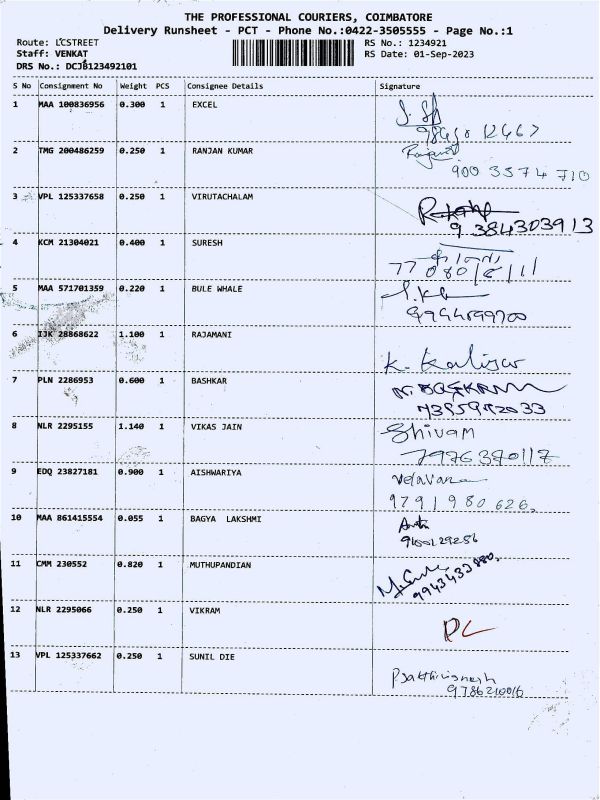 THE PROFESSIONAL COURIERS, COIMBATORE
Delivery Runsheet - PCT - Phone No.:0422-3505555 - Page No.:1
Route: LCSTREET RS No.: 1234921
Staff: VENKAT RS Date: 01-Sep-2023
DRS No.: DCJB123492101
S No Consignment No Weight PCS Consignee Details Signature
1 MAA 100836956 0.300 1 EXCEL
2 TMG 200486259 0.250 1 RANJAN KUMAR
900 3574 710
3 VPL 125337658 0.250 1 VIRUTACHALAM
9384303913
4 KCM 21304021 0.400 1 SURESH
5 MAA 571701359 0.220 1 BULE WHALE
9944199700
6 IJK 28868622 1.100 1 RAJAMANI
7 PLN 2286953 0.600 1 BASHKAR
8 NLR 2295155 1.140 1 VIKAS JAIN Shivam
7976370117
9 EDQ 23827181 0.900 1 AISHWARIYA
9791 980 626.
10 MAA 861415554 0.055 1 BAGYA LAKSHMI
11 CMM 230552 0.820 1 MUTHUPANDIAN
12 NLR 2295066 0.250 1 VIKRAM
13 VPL 125337662 0.250 1 SUNIL DIE
9786210016